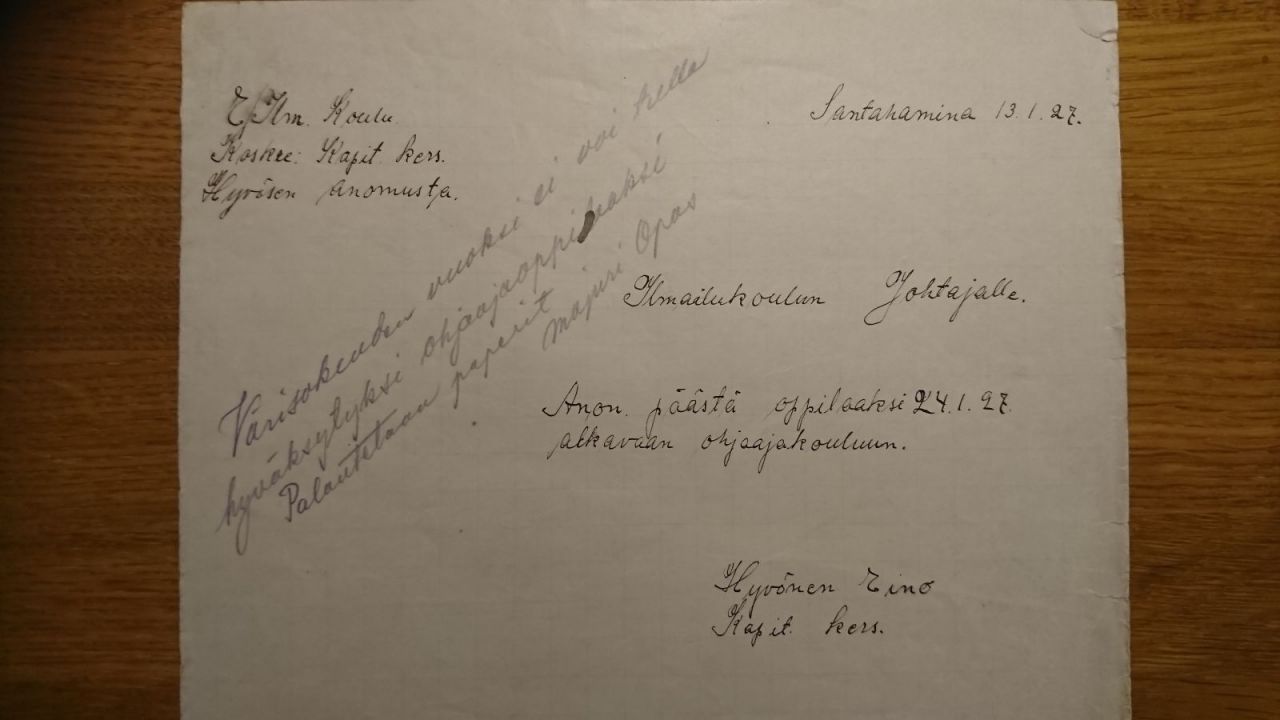 E/Ilm. Koulu.
Koskee: Kapit. kers.
Hyvösen anomusta.
Santahamina 13.1.27.
Ilmailukoulun Johtajalle.
Anon. päästä oppilaaksi 24.1.27.
alkavaan ohjaajakouluun.
Hyvönen Eino
Kapit. kers.
Värisokeuden vuoksi ei voi tulla
hyväksytyksi ohjaajaoppilaaksi
Palautetaan paperit
majuri Opas